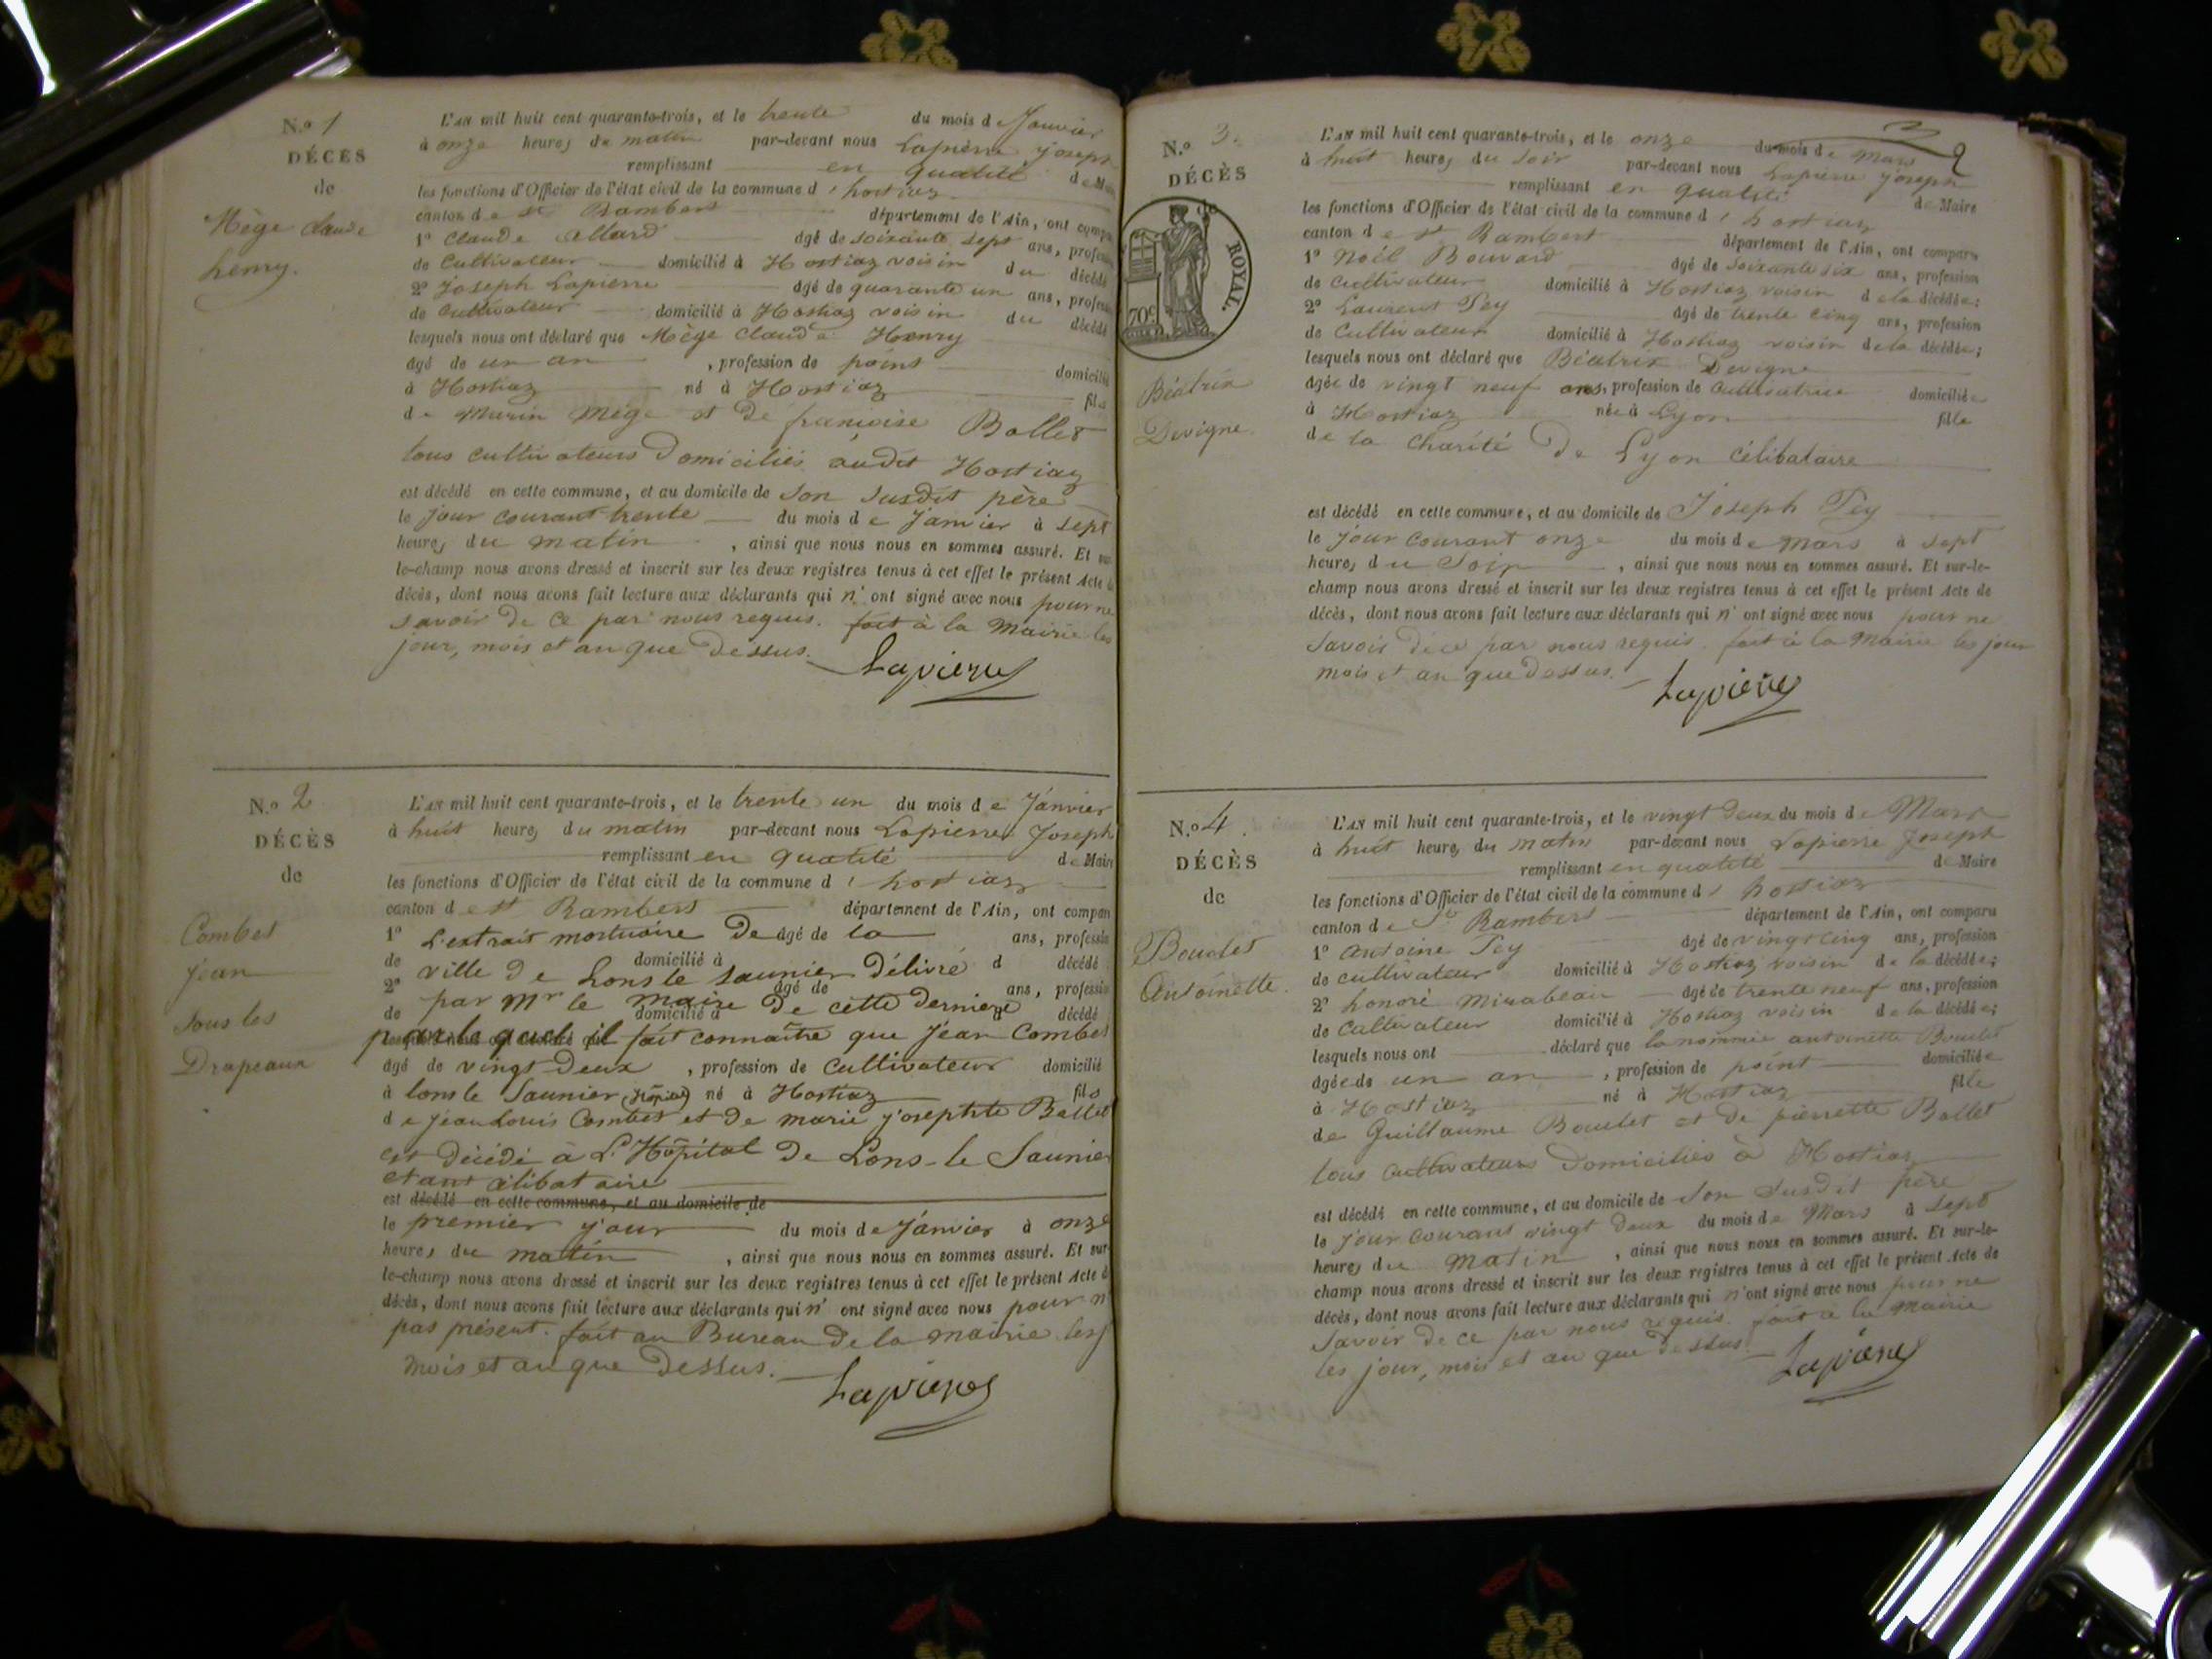 N.º 1
DÉCÈS
de
Mège Claude
henry.
L'AN mil huit cent quarante-trois, et le trente du mois de Janvier
à onze heures du matin par-devant nous Lapierre Joseph
remplissant en qualité de Mai
les fonctions d'Officier de l'état civil de la commune d'hostiaz
canton de St Rambert département de l'Ain, ont compa
1º Claude Allard âgé de soixante sept ans, profes
de Cultivateur domicilié à Hostiaz voisin du décédé
2º Joseph Lapierre âgé de quarante un ans, profess
de Cultivateur domicilié à Hostiaz voisin du décédé
lesquels nous ont déclaré que Mège Claude Henry
âgé de un an, profession de point domicilié
à Hostiaz né à Hostiaz fils
de Marin Mège et de françoise Ballet
tous cultivateurs Domiciliés audit Hostiaz
est décédé en cette commune, et au domicile de son susdit père
le jour courant trente du mois de Janvier à sept
heures du matin, ainsi que nous nous en sommes assuré. Et
le-champ nous avons dressé et inscrit sur les deux registres tenus à cet effet le présent Acte d
décès, dont nous avons fait lecture aux déclarants qui n'ont signé avec nous pour ne
savoir De ce par nous requis. fait à la Mairie les
jour, mois et an que Dessus. Lapierre
N.º 2
DÉCÈS
de
Combet
Jean
Sous les
Drapeaux
L'AN mil huit cent quarante-trois, et le trente un du mois de Janvier
à huit heures du matin par-devant nous Lapierre Joseph
remplissant en qualité de Mair
les fonctions d'Officier de l'état civil de la commune d'hostiaz
canton de St Rambert département de l'Ain, ont compar
1º L'extrait mortuaire De âgé de la ans, professio
de domicilié à d décédé
2º ville De Lons le Saunier Délivré âgé de ans, professio
de par Mr le maire De cette derniere domicilié à décédé
par le quel il fait connaître que Jean Combet
âgé de vingt Deux, profession de Cultivateur domicilié
à lons le Saunier (hôpital) né à Hostiaz fils
de Jean Louis Combet et de marie josephte Ballet
est décédé à L'Hôpital De Lons-le Saunier
etant célibataire
est décédé en cette commune, et au domicile de
le premier jour du mois de Janvier à onze
heures du matin, ainsi que nous nous en sommes assuré. Et sur
le-champ nous avons dressé et inscrit sur les deux registres tenus à cet effet le présent Acte d
décès, dont nous avons fait lecture aux déclarants qui n'ont signé avec nous pour n
pas présent. fait au Bureau De la mairie les j
mois et an que Dessus. Lapierre
2
N.º 3.
DÉCÈS
de
ROYAL.
70c
Béatrix
Devigne
L'AN mil huit cent quarante-trois, et le onze du mois de Mars
à huit heures du soir par-devant nous Lapierre Joseph
remplissant en qualité de Maire
les fonctions d'Officier de l'état civil de la commune d'hostiaz
canton de St Rambert département de l'Ain, ont comparu
1º Noël Bouvard âgé de soixante six ans, profession
de Cultivateur domicilié à Hostiaz voisin de la décédée;
2º Laurent Pey âgé de trente cinq ans, profession
de Cultivateur domicilié à Hostiaz voisin de la décédée;
lesquels nous ont déclaré que Béatrix Devigne
âgée de vingt neuf ans, profession de cultivatrice domiciliée
à Hostiaz née à Lyon fille
de la Charité De Lyon célibataire
est décédé en cette commune, et au domicile de Joseph Pey
le jour courant onze du mois de Mars à sept
heures du Soir, ainsi que nous nous en sommes assuré. Et sur-le-
champ nous avons dressé et inscrit sur les deux registres tenus à cet effet le présent Acte de
décès, dont nous avons fait lecture aux déclarants qui n'ont signé avec nous pour ne
savoir De ce par nous requis. fait à la Mairie les jour
mois et an que Dessus. Lapierre
N.º 4.
DÉCÈS
de
Boudet
Antoinette.
L'AN mil huit cent quarante-trois, et le vingt Deux du mois de Mars
à huit heures du matin par-devant nous Lapierre Joseph
remplissant en qualité de Maire
les fonctions d'Officier de l'état civil de la commune d'hostiaz
canton de St Rambert département de l'Ain, ont comparu
1º Antoine Pey âgé de vingt cinq ans, profession
de cultivateur domicilié à Hostiaz voisin de la décédée;
2º honoré Mirabeau âgé de trente neuf ans, profession
de Cultivateur domicilié à Hostiaz voisin de la décédée;
lesquels nous ont déclaré que la nommée antoinette Boudet
âgée de un an, profession de point domiciliée
à Hostiaz né à Hostiaz fille
de Guillaume Boudet et De pierrette Ballet
tous cultivateurs Domiciliés à Hostiaz
est décédé en cette commune, et au domicile de son susdit père
le jour courant vingt Deux du mois de Mars à sept
heures du Matin, ainsi que nous nous en sommes assuré. Et sur-le-
champ nous avons dressé et inscrit sur les deux registres tenus à cet effet le présent Acte de
décès, dont nous avons fait lecture aux déclarants qui n'ont signé avec nous pour ne
savoir De ce par nous requis. fait à la Mairie
les jour, mois et an que Dessus. Lapierre